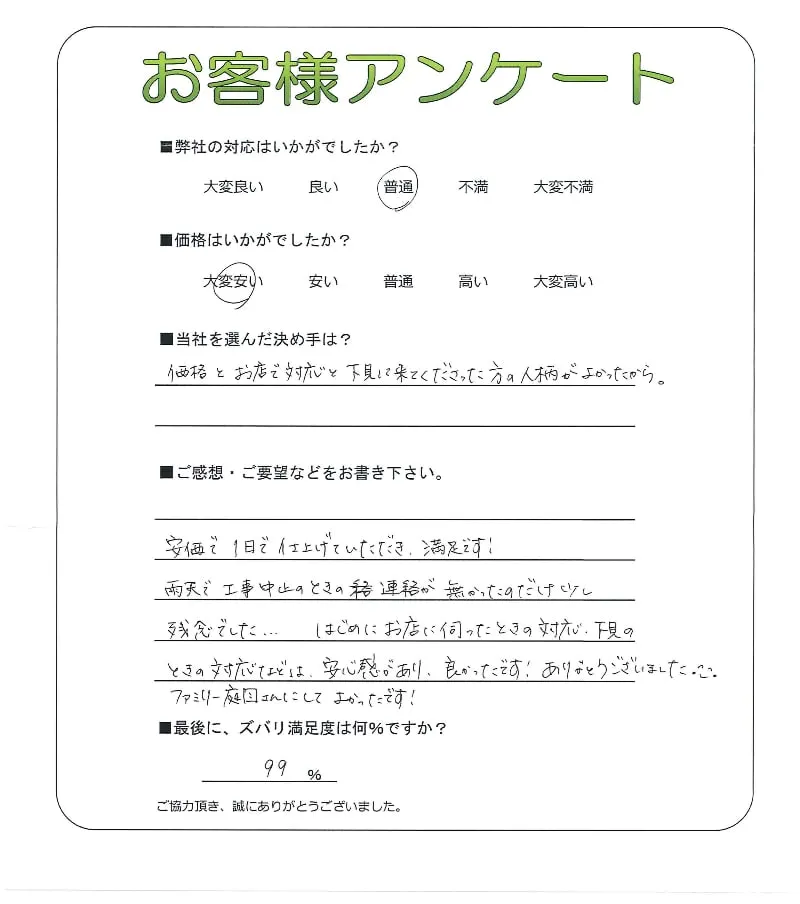 お客様アンケート
■弊社の対応はいかがでしたか？
大変良い 良い 普通 不満 大変不満
■価格はいかがでしたか？
大変安い 安い 普通 高い 大変高い
■当社を選んだ決め手は？
価格とお店で対応と下見に来てくださった方の人柄がよかったから。
■ご感想・ご要望などをお書き下さい。
安価で1日で仕上げていただき、満足です！
雨天で工事中止のときの連絡が無かったのだけ少し
残念でした… はじめにお店に伺ったときの対応、下見の
ときの対応などは、安心感があり、良かったです！ありがとうございました
ファミリー庭園さんにしてよかったです！
■最後に、ズバリ満足度は何%ですか？
99 %
ご協力頂き、誠にありがとうございました。